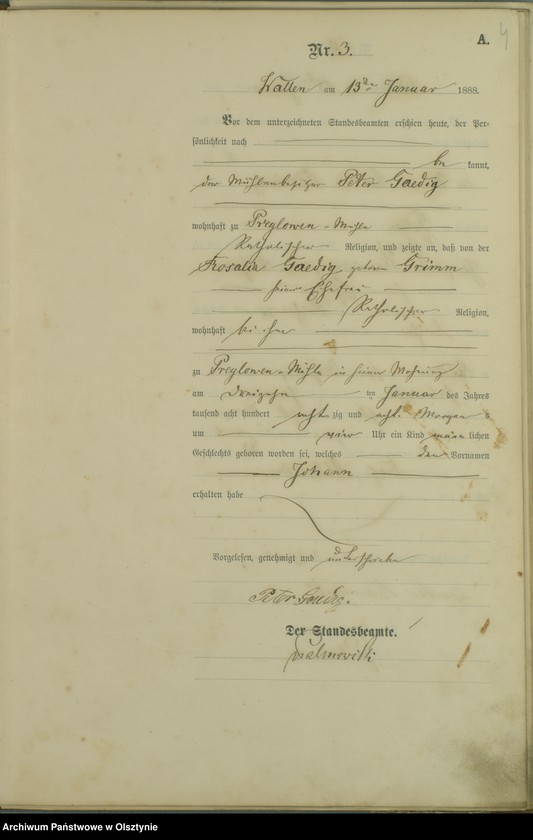 A. 4
Nr. 3.
am 13ten Januar 1888.
Vor dem unterzeichneten Standesbeamten erschien heute, der Per-
sönlichkeit nach
be kannt,
der Mühlenbesitzer Peter Gaedig
wohnhaft zu Preylowen-Mühle
Katholischer Religion, und zeigte an, daß von der
Rosalia Gaedig geborene Grimm
seiner Ehefrau
Katholischer Religion,
wohnhaft bei ihm
zu Preylowen-Mühle in seiner Wohnung
am dreizehn ten Januar des Jahres
tausend acht hundert acht zig und acht Morgens
um vier Uhr ein Kind männ lichen
Geschlechts geboren worden sei, welches den Vornamen
Johann
erhalten habe
Vorgelesen, genehmigt und unterschrieben
Peter Gaedig.
Der Standesbeamte.
Archiwum Państwowe w Olsztynie